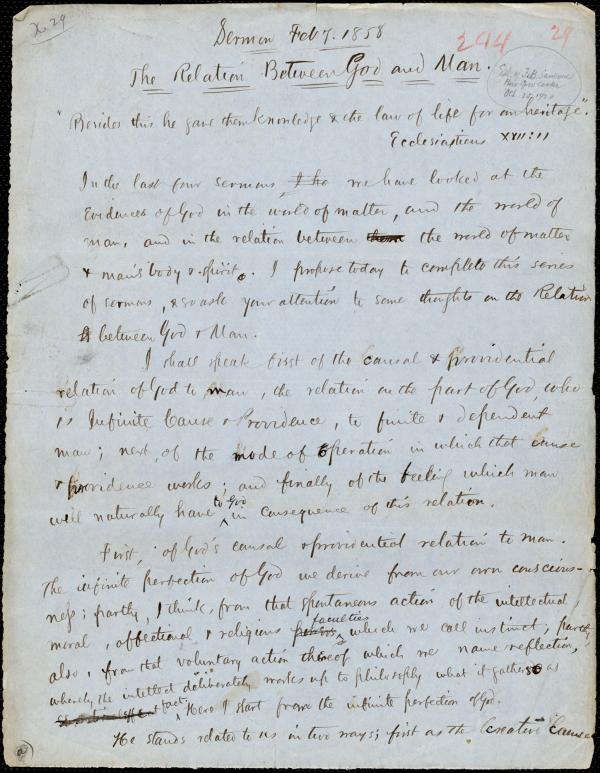 X 29
Sermon Feb 7. 1858
294
29
The Relation Between God and Man.
Ed. of F.B. Sanborn
"Besides this he gave them knowledge & the law of life for an heritage."
Ecclesiasticus XVII:11
In the last four sermons, we have looked at the
Evidences of God in the world of matter, and the world of
man, and in the relation between them the world of matter
& man's body & spirit. I propose today to complete this series
of sermons, & so ask your attention to some thoughts on the Relation
between God & Man.
I shall speak first of the causal & providential
relation of God to man, the relation on the part of God, who
is Infinite Cause & Providence, to finite & dependent
man; next, of the mode of operation in which that cause
& providence works; and finally of the feeling which man
will naturally have to God in consequence of this relation.
First, of God's causal & providential relation to man.
The infinite perfection of God we derive from our own conscious-
ness; partly, I think, from that spontaneous action of the intellectual,
moral, affectional & religious powers faculties which we call instinct, partly
also, from that voluntary action thereof which we name reflection,
whereby the intellect deliberately works up to philosophy what it gathers as
fact. Here I start from the infinite perfection of God.
He stands related to us in two ways; first as the Creative Cause